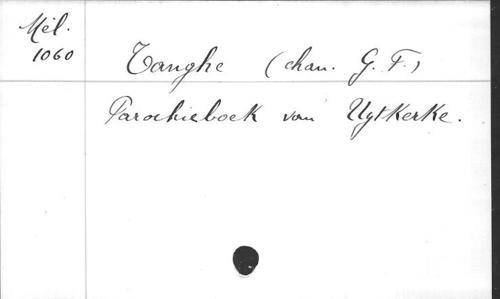 Mél.
1060
Tanghe (chan. G. F.)
Parochieboek van Uytkerke.